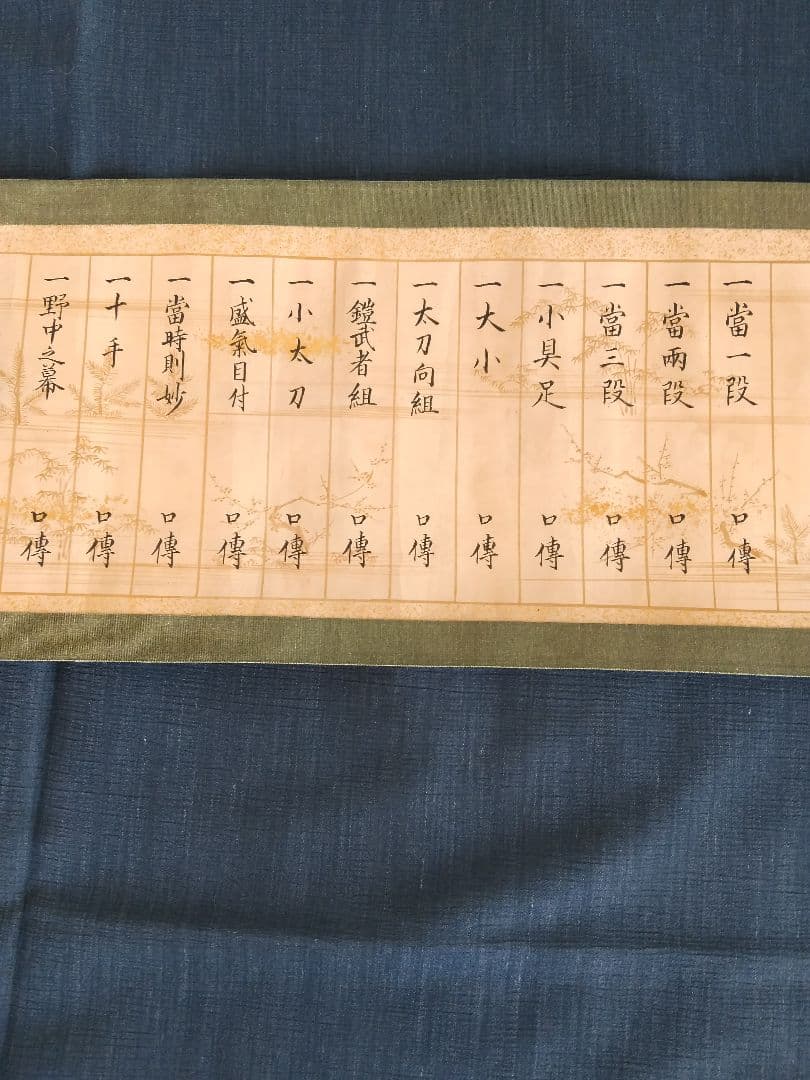 一當一段 口傳
一當兩段 口傳
一當三段 口傳
一小具足 口傳
一大小 口傳
一太刀向組 口傳
一鎧武者組 口傳
一小太刀 口傳
一盛氣目付 口傳
一當時則妙 口傳
一十手 口傳
一野中之幕 口傳